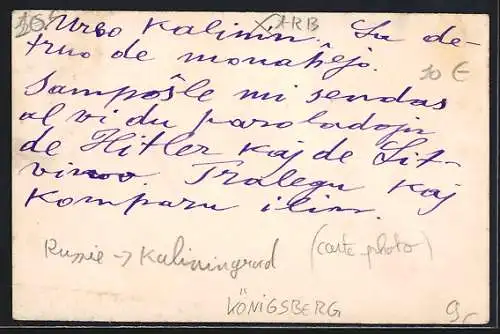 Urbo Kalinin. La de-
truo de monaĥejo.
Sampoŝte mi sendas
al vi du paroladojn
de Hitler kaj de Lit-
vinov. Tralegu kaj
komparu ilin.
XARB
10 €
Russie → Kaliningrad (carte photo)
KÖNIGSBERG